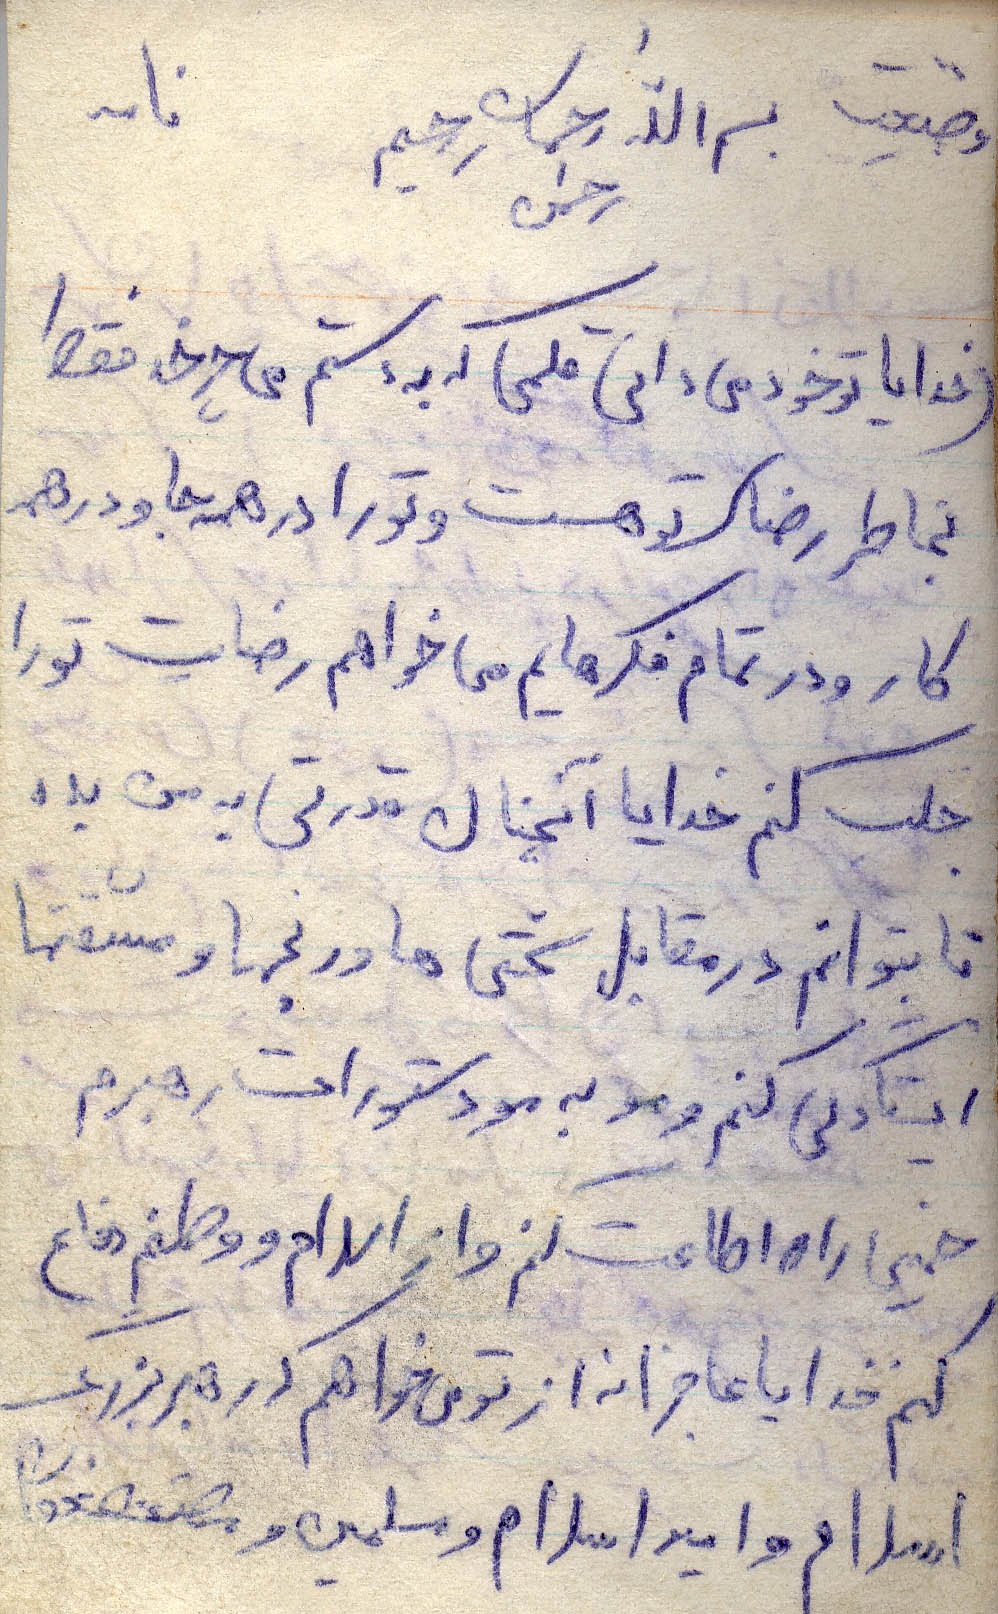 وصیعت بسم الله رحمان رحیم نامه
رحمن
(خدایا تو خود می دانی قلمی که به دستم می چرخد فقط
بخاطر رضای تو هست و تو را در همه جا و در همه
کار و در تمام فکرهایم می خواهم رضایت تو را
جلب کنم خدایا آنچنان قدرتی به من بده
تا بتوانم در مقابل سختی ها و رنجها و مشقتها
ایستادگی کنم و مو به مو دستورات رهبرم
خمینی را اطاعت کنم و از اسلام و وطنم دفاع
کنم خدایا عاجزانه از تو می خواهم که رهبر بزرگ
اسلام و امید اسلام و مسلمین و مستضعفان